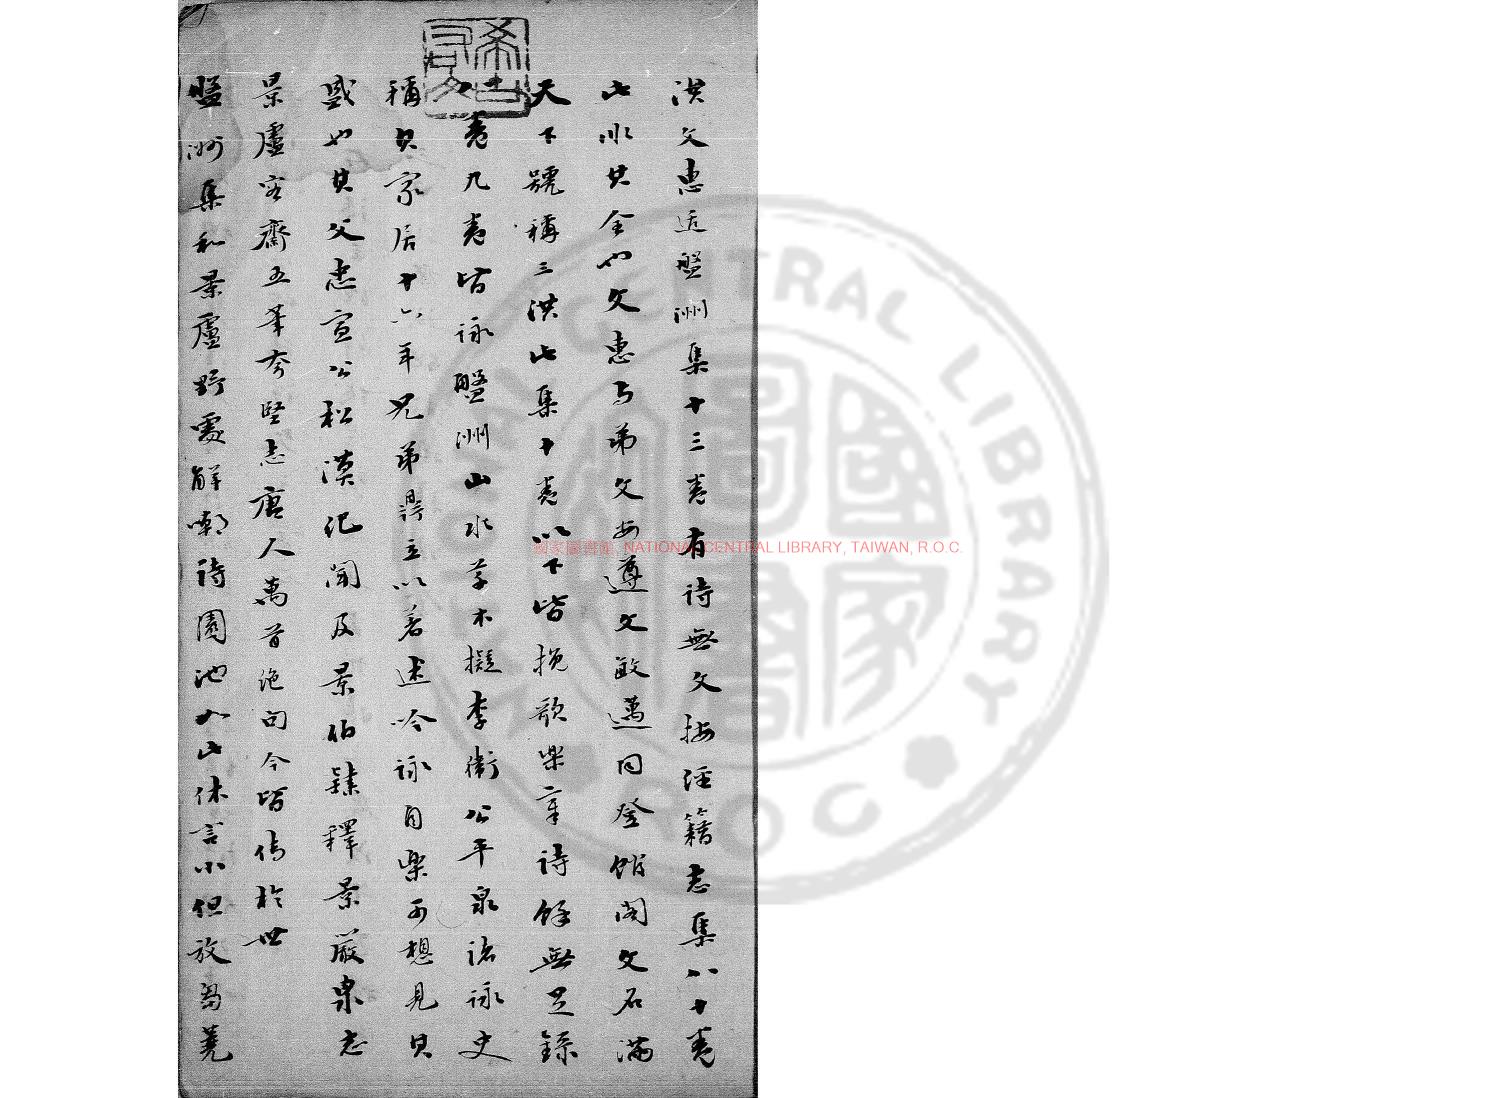 洪文惠适盤洲集十三卷有詩無文按經籍志集八十卷
此非其全也文惠與弟文安遵文敏邁同登館閣文名滿
天下號稱三洪此集十卷以下皆挽歌樂章詩餘無足錄
八卷九卷皆詠盤洲山水草木擬李衛公平泉諸詠史
稱其家居十六年兄弟鼎立以著述吟詠自樂可想見其
盛也其父忠宣公松漠紀聞及景伯隸釋景嚴泉志
景廬容齋五筆夷堅志唐人萬首絕句今皆傳於世
盤洲集和景廬野處解嘲詩園池如此休言小但放芻蕘
國家圖書館 NATIONAL CENTRAL LIBRARY, TAIWAN, R.O.C.
NATIONAL CENTRAL LIBRARY
ROC
國家圖書